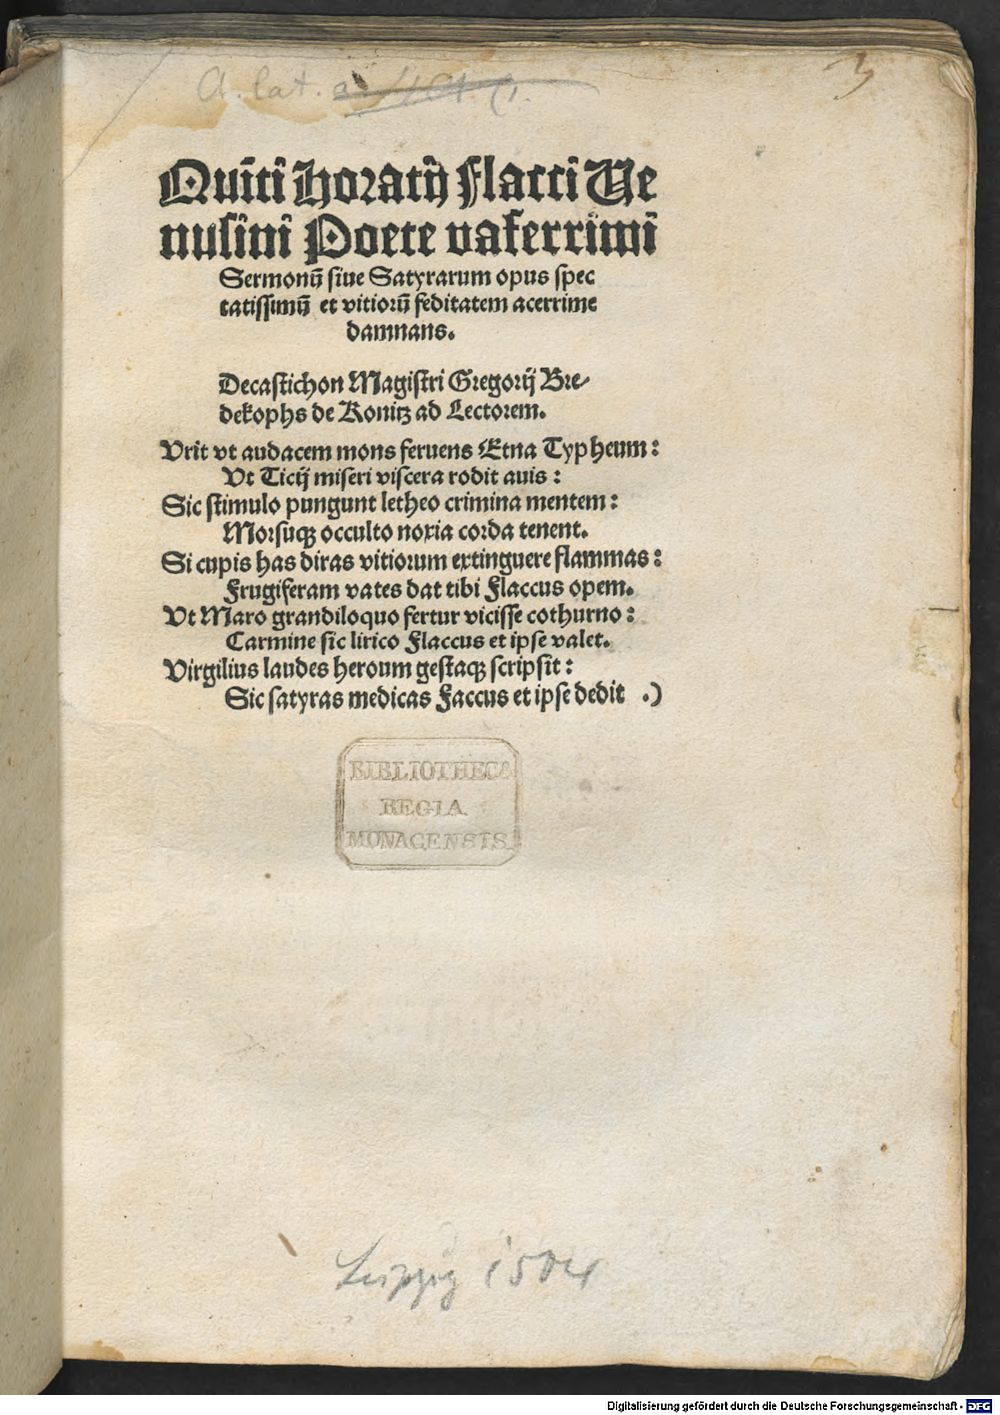 A. lat. a.
3
Qui̅ti Horatij Flacci Ve
nusini Poete vaferrimi
Sermonu̅ siue Satyrarum opus spec
tatissimu̅ et vitioru̅ feditatem acerrime
damnans.
Decastichon Magistri Gregorij Bre⸗
dekophs de Konitz ad Lectorem.
Vrit vt audacem mons feruens Etna Typheum:
Vt Ticij miseri viscera rodit auis:
Sic stimulo pungunt letheo crimina mentem:
Morsuqꝫ occulto noxia corda tenent.
Si cupis has diras vitiorum extinguere flammas:
Frugiferam vates dat tibi Flaccus opem.
Vt Maro grandiloquo fertur vicisse cothurno:
Carmine sic lirico Flaccus et ipse valet.
Virgilius laudes heroum gestaqꝫ scripsit:
Sic satyras medicas Faccus et ipse dedit .)
BIBLIOTHECA
REGIA
MONACENSIS
Leipzig 1504
Digitalisierung gefördert durch die Deutsche Forschungsgemeinschaft - DFG